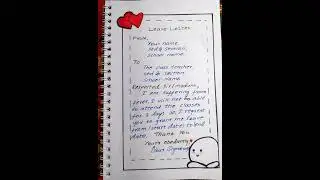 Leave Letter
From,
Your name
std & section,
school name.
To
The class teacher,
std & section
school name
Respected Sir/madam,
I am suffering from
fever, I will not be able
to attend the classes
for 3 days. So, I request
you to grant me leave
from (start date) to (end
date).
Thank You
Yours obediently